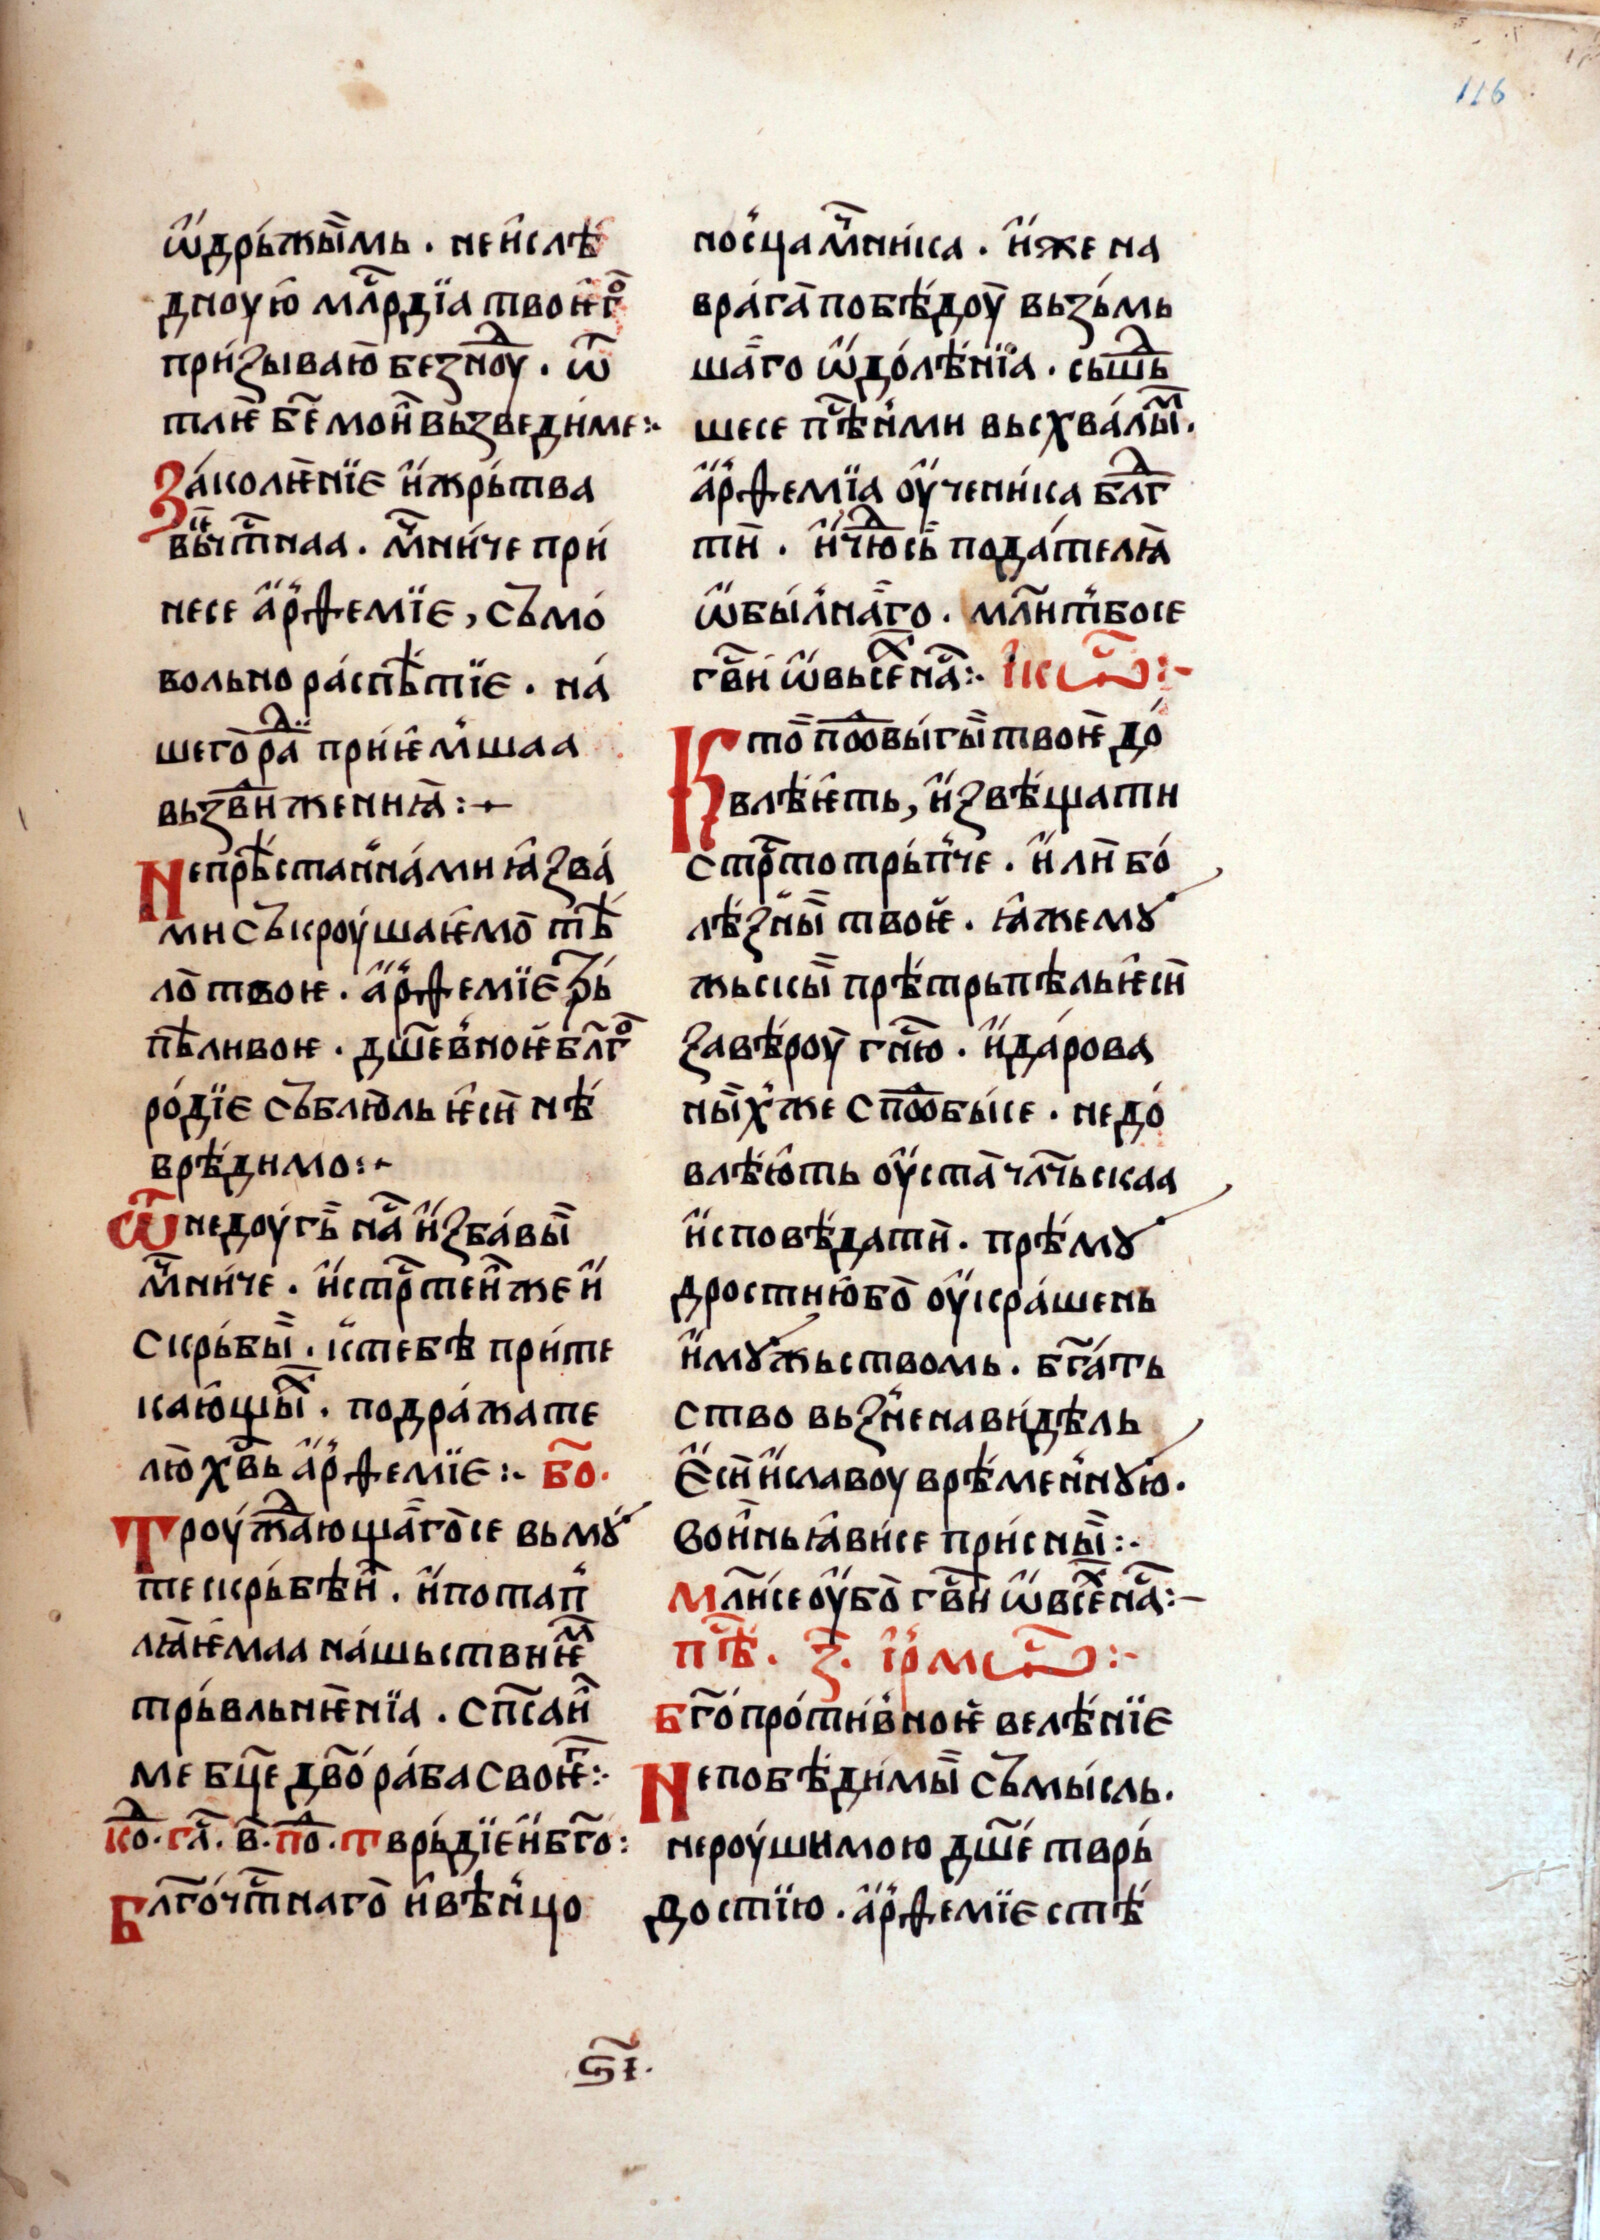 116
ѡ҆дрь́жы̏мь . неи҆слѣ́
дноую̀ млⷭ҇рдїа твоѥ҆гⷪ҇
при́зываю҆ безⷣноу . ѿ
тлѥ҆ бе҃ мои҆ вьзведи́ме :~
За́колѥ҆нїѥ и҆жрь́тва
вь̏чⷭ҇тнаа . мⷱ҇ни́че при́
несе а҆р̈ѳемїѥ , съмо́
вольно ра́спѣ́тїѥ . на́
шего̀ раⷣ прїи́ѥ҆м̏шаа
вьзⷣви́женниꙗ̀ :~
Непрѣ́стан̏на́ми ꙗ҆зва́
ми съкроу́шаѥ҆мо̀ тѣ́
ло̀ твоѥ . а҆р̈ѳемїѥ трь́
пѣ́ливоѥ . дш҃ев̏ноѥ̀ блгⷪ҇
ро́дїѥ съблю҆ль ѥ҆си̏ нѣ́
врѣ́димо :~
Ѿ недоу́гь̏ на́с и҆зба́вы̏
мⷱ҇ни́че . и҆стрⷭ҇теи҆ же и҆
скрь́бы̏ . к̏тебѣ при́те
каю҆щы̏хⷯ . подра́жате
лю҆ хв҃ь а҆р̈ѳемїѥ :~ бо҃ .
Троу́жⷣающаⷢ҇го̀се вь мꙋ́
те скрь́бѣи҆ . и҆ потап̏
лꙗ҆ѥмаа на́шьствиѥⷨ
трь́вльнѥ҆нїа . спⷭ҇саи҆
ме бц҃е дв҃о ра́ба своѥⷢ҇ :~
коⷣ . гла҃ . в҃ . поⷣ . Тврь́дїѥ и҆ бг҃о :
Блг҃о́чⷭ҇тнаго̀ и҆ вѣ́н̏цо
нос̏ца мⷱ҇ни́ка . и҆же на
вра́га̀ побѣ́доу̀ вьзь́мь
шаⷢ҇го ѡ҆дóлѣ́нїа . сьшⷣь
шесе пⷭ҇ѣн̏ми вьсхва́лы̏ⷨ .
а҆р̈ѳемїа оу҆чени́ка блⷣг
ти̏ . и҆ чюⷣсь̏ пода́телꙗ҆
ѡ҆бы́л̏наⷢ҇го . млⷭ҇ит̏босе
гв҃и ѡ҆ вьсеⷯ на́с :~ ікѡс :~
Кто̀ поⷣовы́гы̏ твоѥ̀ дó
влѣ́ѥ҆ть , и҆звѣ́щати
стрⷭ҇тотрь́п̏че . и҆ли̏ бо́
лѣ́зны̏ твоѥ̀ . ꙗ҆же мꙋ
жьскы̏ прѣ́трьпѣль ѥ҆си̏
за вѣ́роу̀ гⷭ҇ню . и҆ да́рова
ны̏х̏же споⷣобы́се . не дó
влѣю҆ть оу҆ста̀ чл҃чьскаа
и҆сповѣ́дати̏ . прѣ́мꙋ
дростию̀бо̀ оу҆кра́шень
и҆ мꙋ́жьствомь . бг҃а́ть
ство вьз̏ненави́дѣль
ѥ҆си̏ и҆ славоу врѣ́мен̏нꙋю .
вои҆нь ꙗ҆ви́се при́сны̏ :~
мл҃и́се оу҆бо̀ гв҃и ѡ҆ всеⷯ на́с :~
пⷭ҇ѣ . з҃ . і҆рмѡс :~
Бг҃о́про́ти́в̏ноѥ̀ велѣ́нїѥ
Непобѣ́ди́мы̏ съмы́сль .
нероу́шимою дш҃е́ тврь́
достїю . а҆р̈ѳемїѥ стѣ́
ѕ҃і .